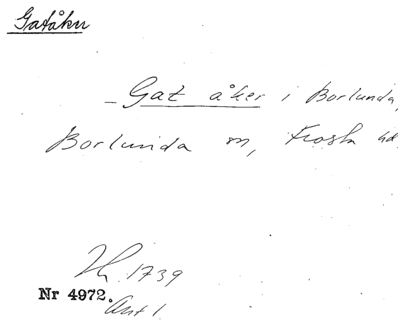 Gatåker
– Gat åker i Borlunda,
Borlunda sn, Frosta hd.
1739
Nr 4972.
Akt 1